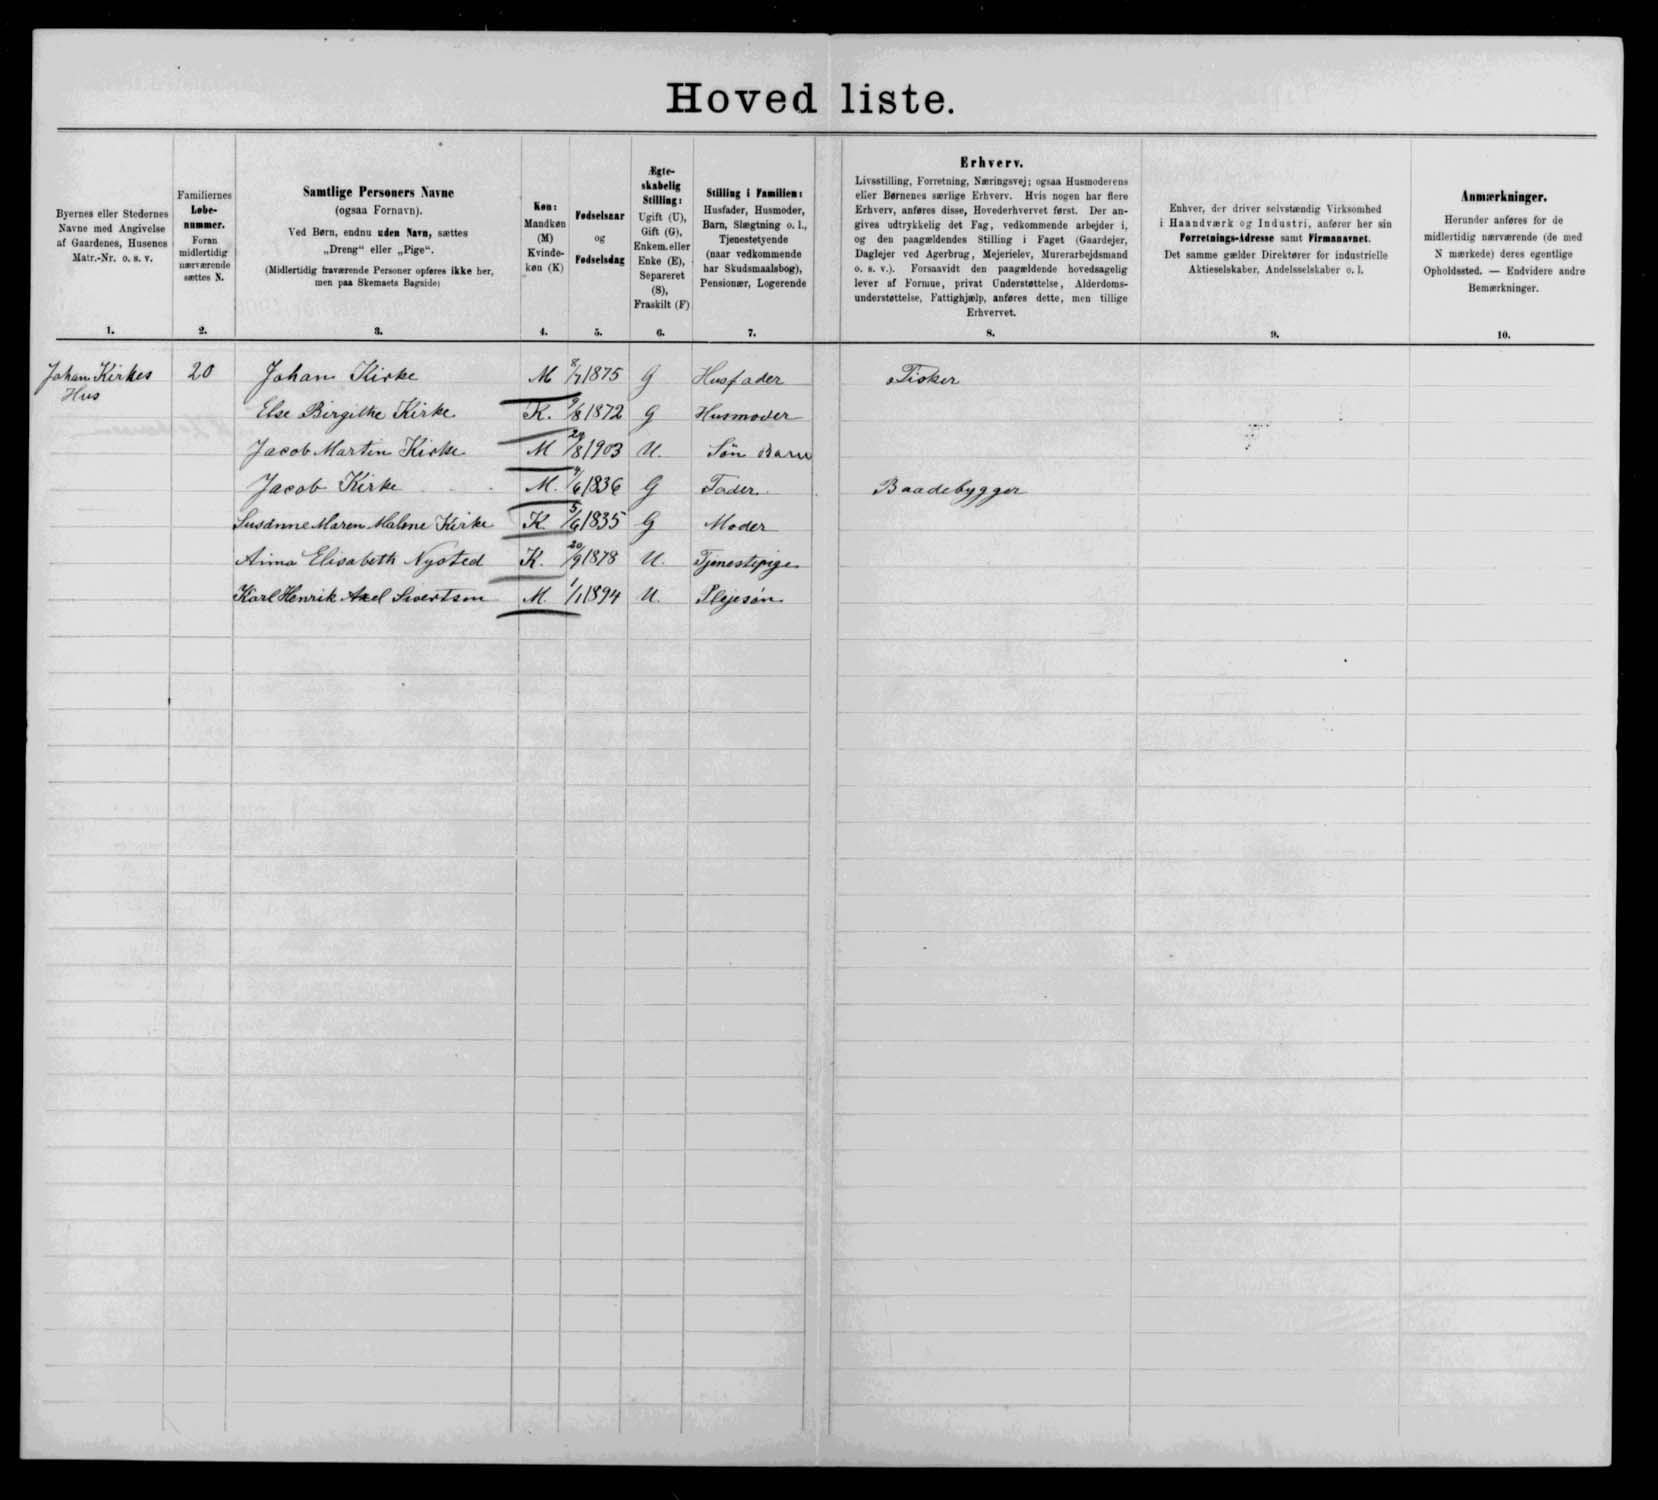 Hoved liste.
Byernes eller Stedernes
Navne med Angivelse
af Gaardenes, Husenes
Matr.-Nr. o. s. v.
1.
Familiernes
Løbe-
nummer.
Foran
midlertidig
nærværende
sættes N.
2.
Samtlige Personers Navne
(ogsaa Fornavn).
Ved Børn, endnu uden Navn, sættes
„Dreng“ eller „Pige“.
(Midlertidig fraværende Personer opføres ikke her,
men paa Skemaets Bagside)
3.
Køn:
Mandkøn
(M)
Kvinde-
køn (K)
4.
Fødselsaar
og
Fødselsdag
5.
Ægte-
skabelig
Stilling:
Ugift (U),
Gift (G),
Enkem. eller
Enke (E),
Separeret
(S),
Fraskilt (F)
6.
Stilling i Familien:
Husfader, Husmoder,
Barn, Slægtning o. l.,
Tjenestetyende
(naar vedkommende
har Skudsmaalsbog),
Pensionær, Logerende
7.
Erhverv.
Livsstilling, Forretning, Næringsvej; ogsaa Husmoderens
eller Børnenes særlige Erhverv. Hvis nogen har flere
Erhverv, anføres disse, Hovederhvervet først. Der an-
gives udtrykkelig det Fag, vedkommende arbejder i,
og den paagældendes Stilling i Faget (Gaardejer,
Daglejer ved Agerbrug, Mejerielev, Murerarbejdsmand
o. s. v.). Forsaavidt den paagældende hovedsagelig
lever af Formue, privat Understøttelse, Alderdoms-
understøttelse, Fattighjælp, anføres dette, men tillige
Erhvervet.
8.
Enhver, der driver selvstændig Virksomhed
i Haandværk og Industri, anfører her sin
Forretnings-Adresse samt Firmanavnet.
Det samme gælder Direktører for industrielle
Aktieselskaber, Andelsselskaber o. l.
9.
Anmærkninger.
Herunder anføres for de
midlertidig nærværende (de med
N mærkede) deres egentlige
Opholdssted. — Endvidere andre
Bemærkninger.
10.
Johan Kirkes 20 Johan Kirke M 8/7 1875 G Husfader Fisker
Hus
Else Birgithe Kirke K. 9/8 1872 G Husmoder
Jacob Martin Kirke M 29/8 1903 U. Søn Barn
Jacob Kirke M. 4/6 1836 G Fader Baadebygger
Susanne Maren Malene Kirke K 5/6 1835 G Moder
Anna Elisabeth Nysted K. 20/9 1878 U. Tjenestepige
Karl Henrik Axel Sivertsen M. 1/1 1894 U. Plejesøn